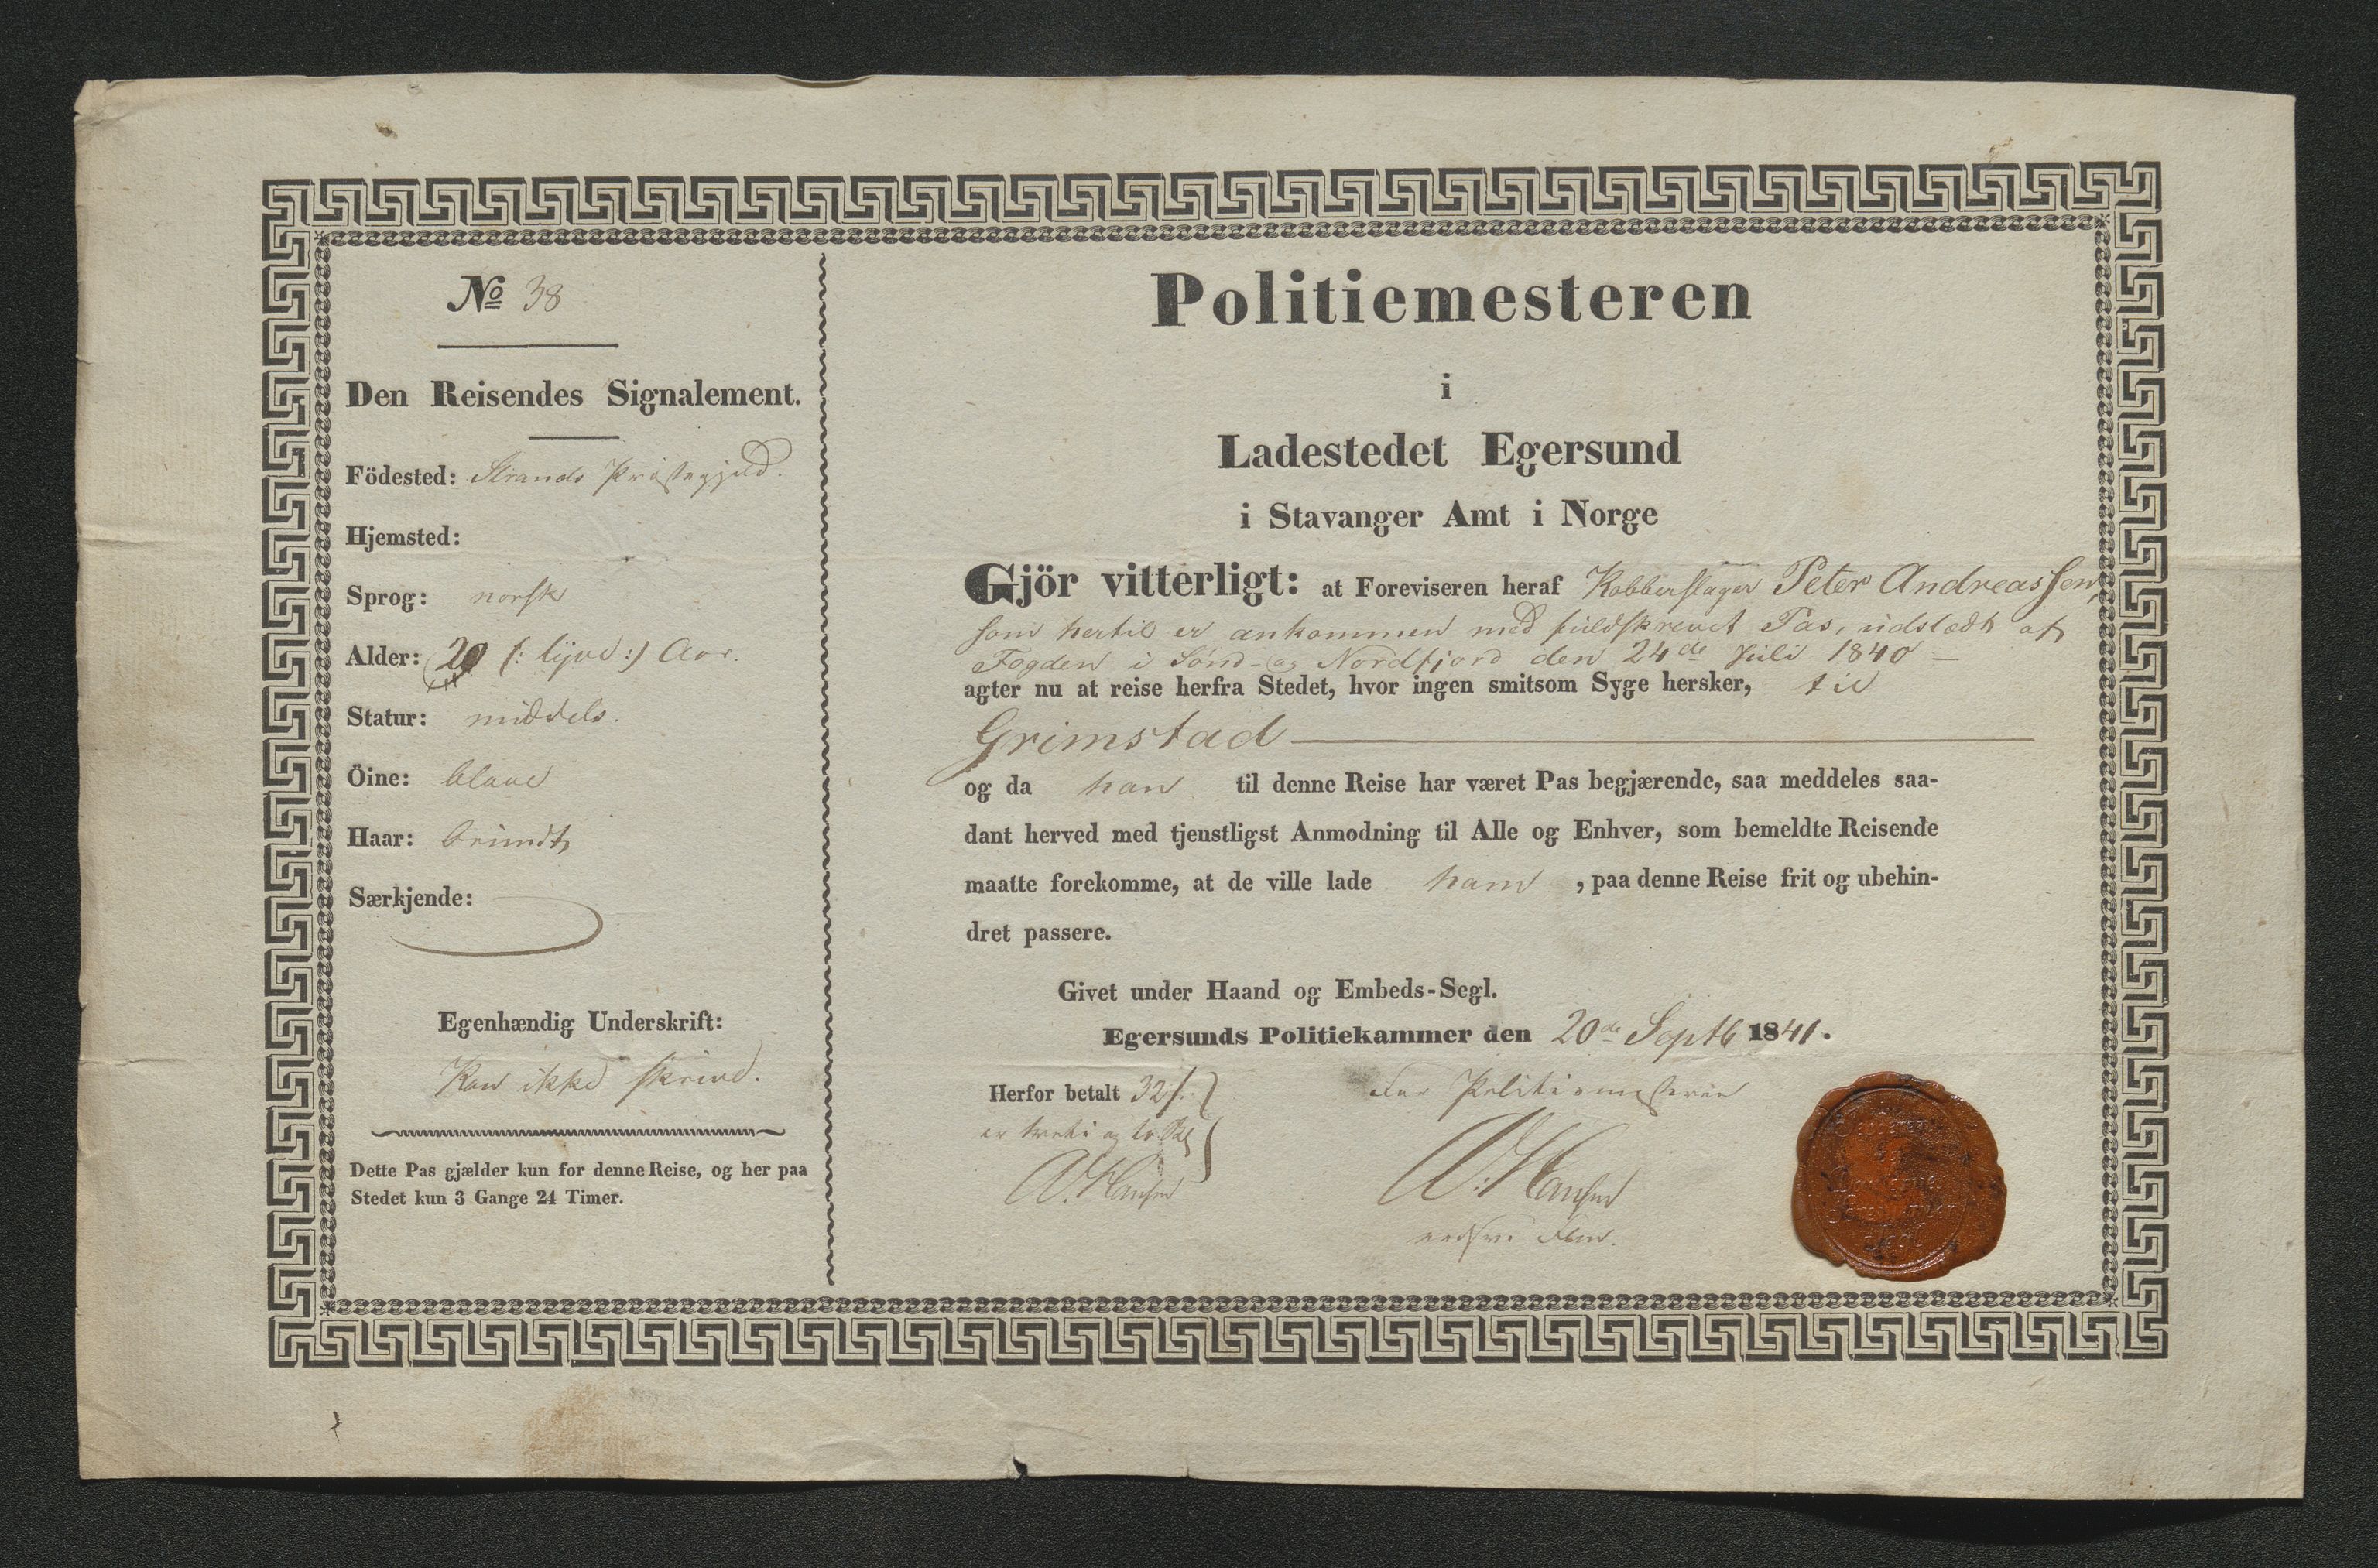 No 38
Den Reisendes Signalement.
Födested: Strands Præstegjeld.
Hjemsted:
Sprog: norsk
Alder: 20 (: tyve :) Aar.
Statur: middels.
Öine: blaae
Haar: bruundt
Særkjende:
Egenhændig Underskrift:
Kan ikke skrive.
Dette Pas gjælder kun for denne Reise, og her paa
Stedet kun 3 Gange 24 Timer.
Politiemesteren
i
Ladestedet Egersund
i Stavanger Amt i Norge
Gjör vitterligt: at Foreviseren heraf Kobberslager Peter Andreassen,
som hertil er ankommen med fuldskrevet Pas, udstædt af
Fogden i Sønd- og Nordfjord den 24de Juli 1840 —
agter nu at reise herfra Stedet, hvor ingen smitsom Syge hersker, til
Grimstad
og da han til denne Reise har været Pas begjærende, saa meddeles saa-
dant herved med tjenstligst Anmodning til Alle og Enhver, som bemeldte Reisende
maatte forekomme, at de ville lade ham , paa denne Reise frit og ubehin-
dret passere.
Givet under Haand og Embeds-Segl.
Egersunds Politiekammer den 20de Septb 1841.
Herfor betalt 32 s.
er treti og to Sk
A. Hansen
For Politiemesteren
A. Hansen